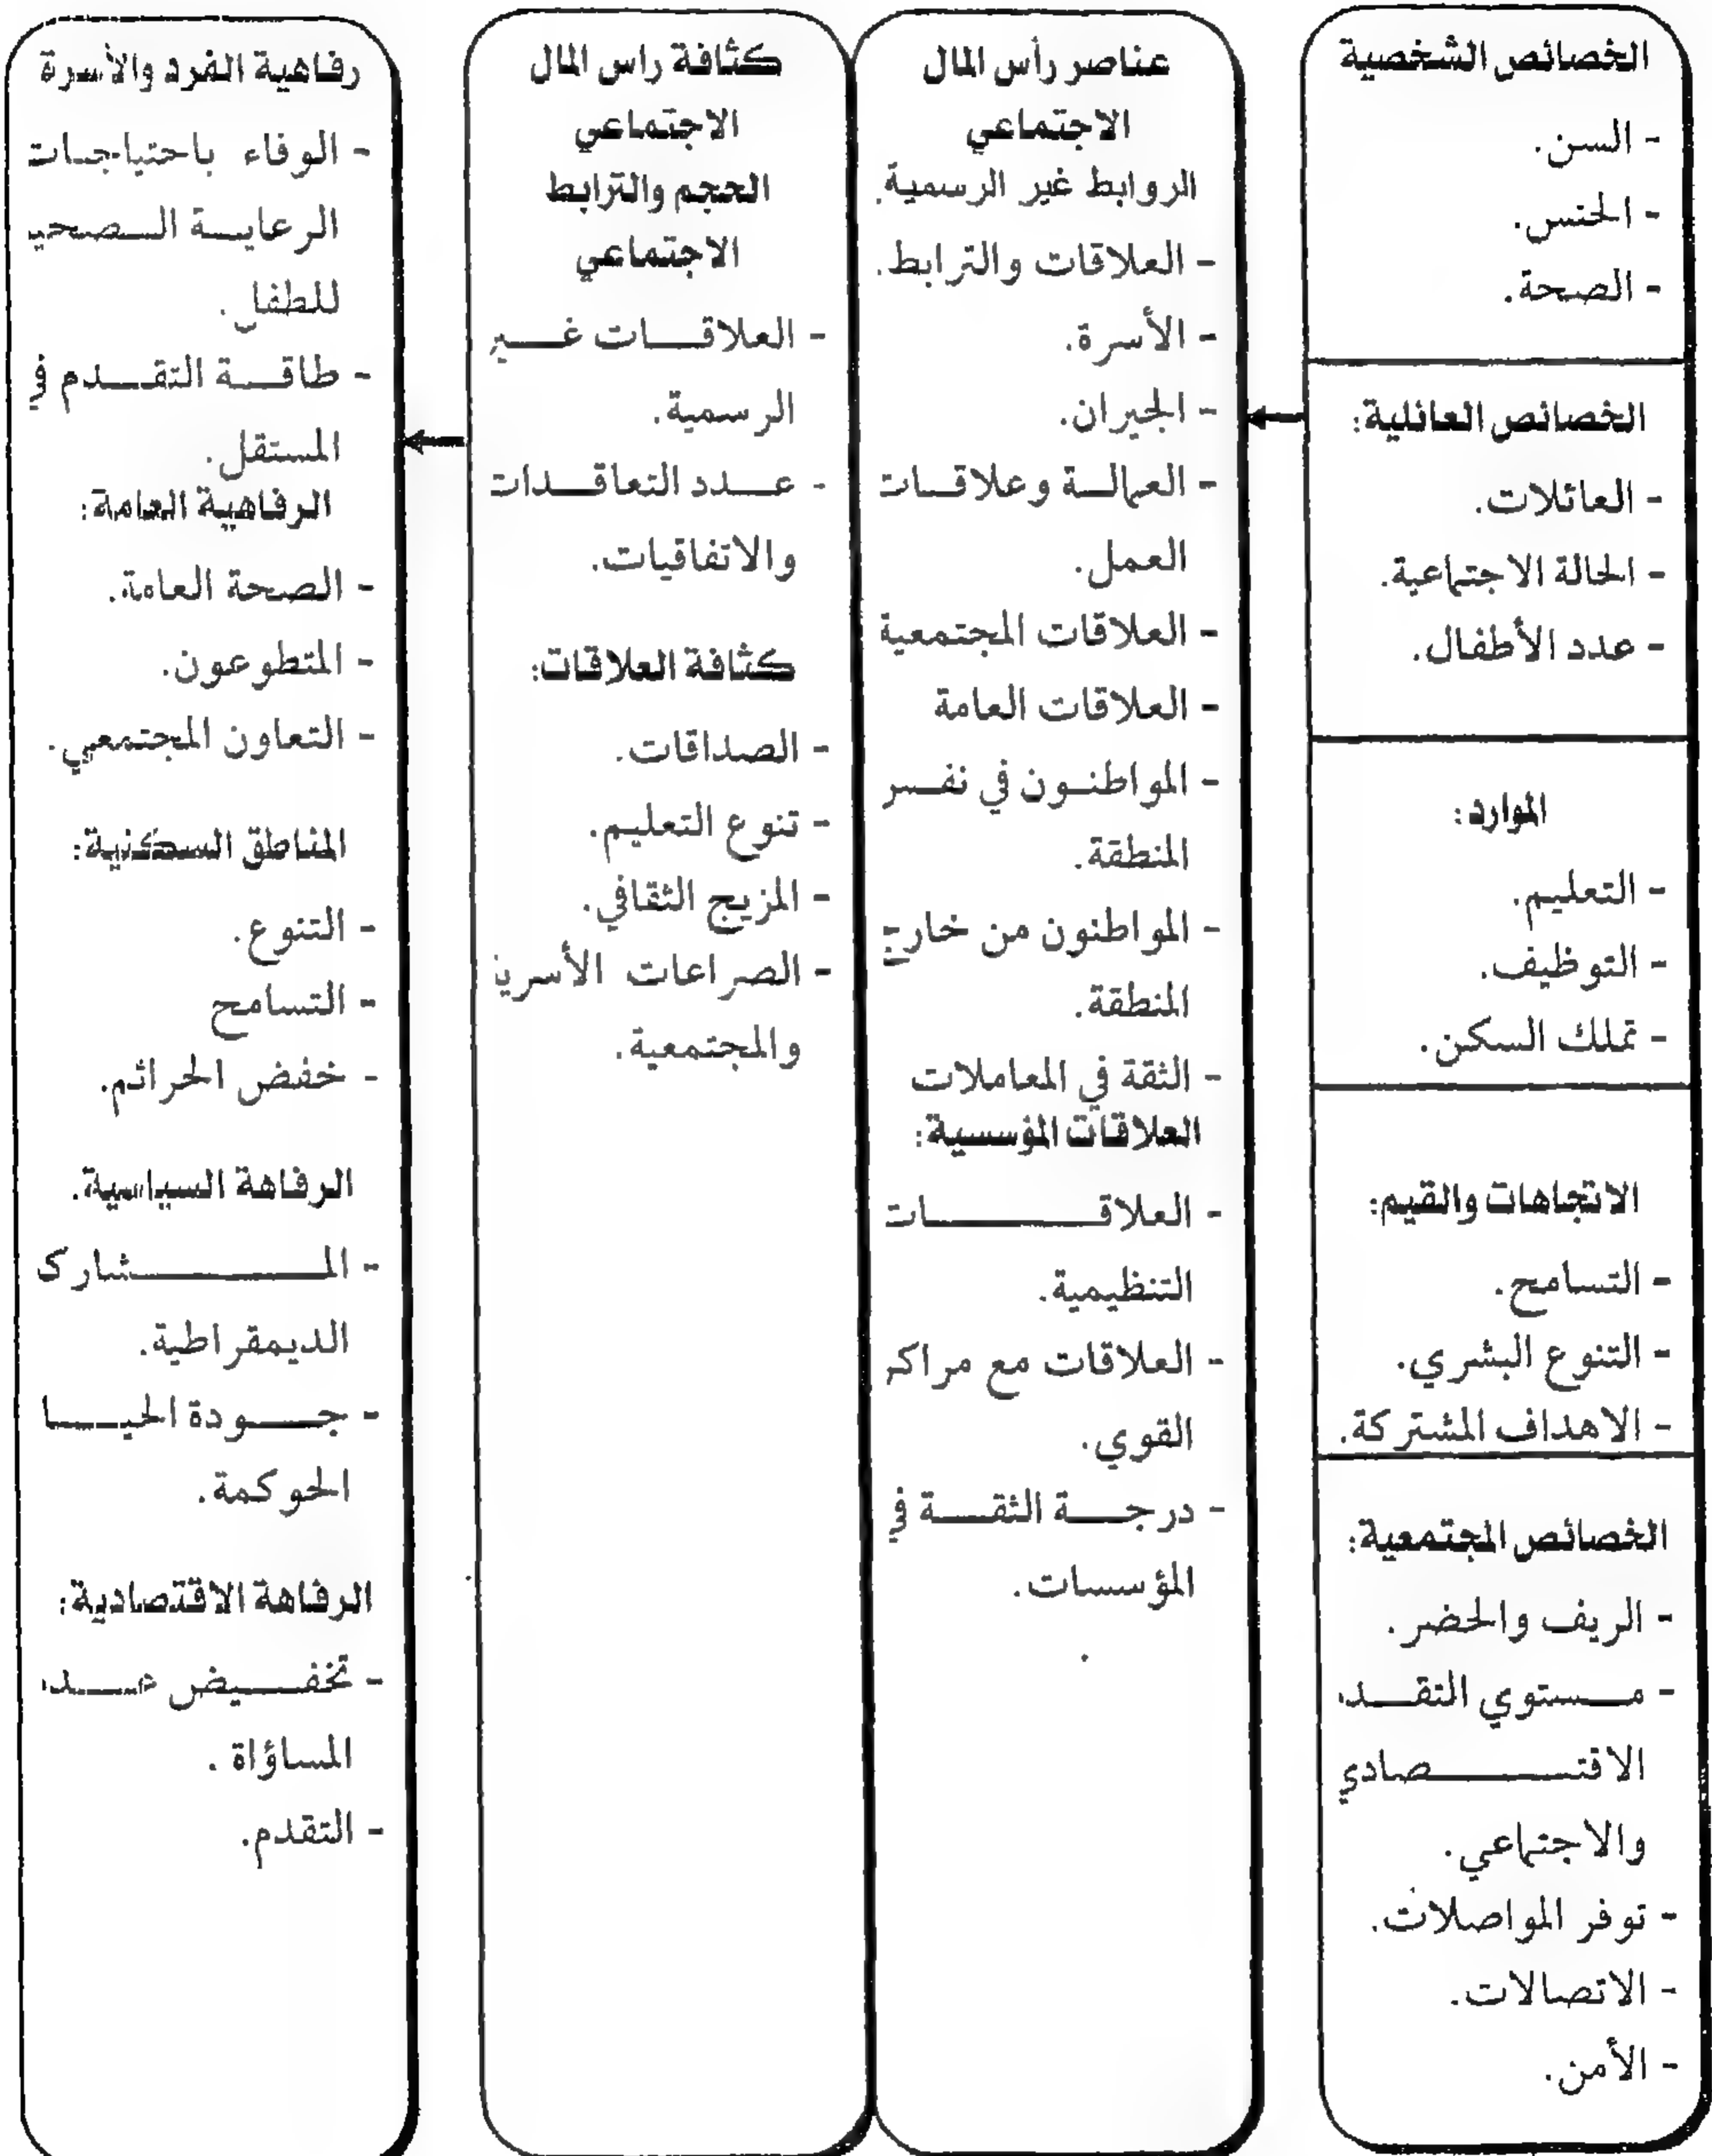 الخصائص الشخصية
- السن.
- الجنس.
- الصحة.
الخصائص العائلية:
- العائلات.
- الحالة الاجتماعية.
- عدد الأطفال.
الموارد:
- التعليم.
- التوظيف.
- تملك السكن.
الاتجاهات والقيم:
- التسامح.
- التنوع البشري.
- الاهداف المشتركة.
الخصائص المجتمعية:
- الريف والحضر.
- مستوي
الاقتصادي
والاجتماعي.
- توفر المواصلات.
- الاتصالات.
- الأمن.
عناصر رأس المال
الاجتماعي
الروابط غير الرسمية.
- العلاقات والترابط.
- الأسرة.
- الجيران.
- العمالة وعلاقات
العمل.
- العلاقات المجتمعية
- العلاقات العامة
- المواطنون في
المنطقة.
- المواطنون من خارج
المنطقة.
- الثقة في المعاملات
العلاقات المؤسسية:
- العلاقات
التنظيمية.
- العلاقات مع
القوي.
- درجة الثقة في
المؤسسات.
كثافة راس المال
الاجتماعي
الحجم والترابط
الاجتماعي
- العلاقات غير
الرسمية.
- عدد التعاقدات
والاتفاقيات.
كثافة العلاقات:
- الصداقات.
- تنوع التعليم.
- المزيج الثقافي.
- الصراعات
والمجتمعية.
رفاهية الفرد والأسرة
- الوفاء باحتياجات
الرعاية
للطفل.
- طاقة التقدم في
المستقل.
الرفاهية العامة:
- الصحة العامة.
- المتطوعون.
- التعاون المجتمعي.
المناطق السكنية:
- التنوع.
- التسامح
- خفض الجرائم.
الرفاهة السياسية.
-
الديمقراطية.
- جودة
الحوكمة.
الرفاهة الاقتصادية:
- تخفيض
المساؤاة.
- التقدم.